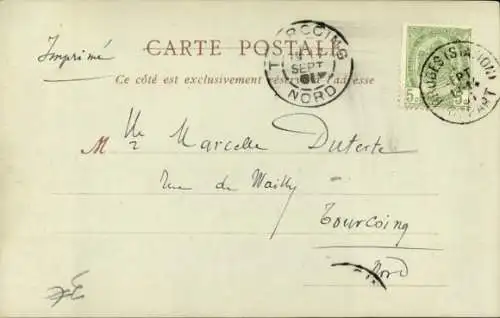 CARTE POSTALE
Imprimé
Ce côté est exclusivement réservé à l'adresse
TOURCOING
SEPT
NORD
BRUGES (STATION)
DÉPART
5c 5c
Mlle Marcelle Duterte
Rue de Wailly
Tourcoing
Nord